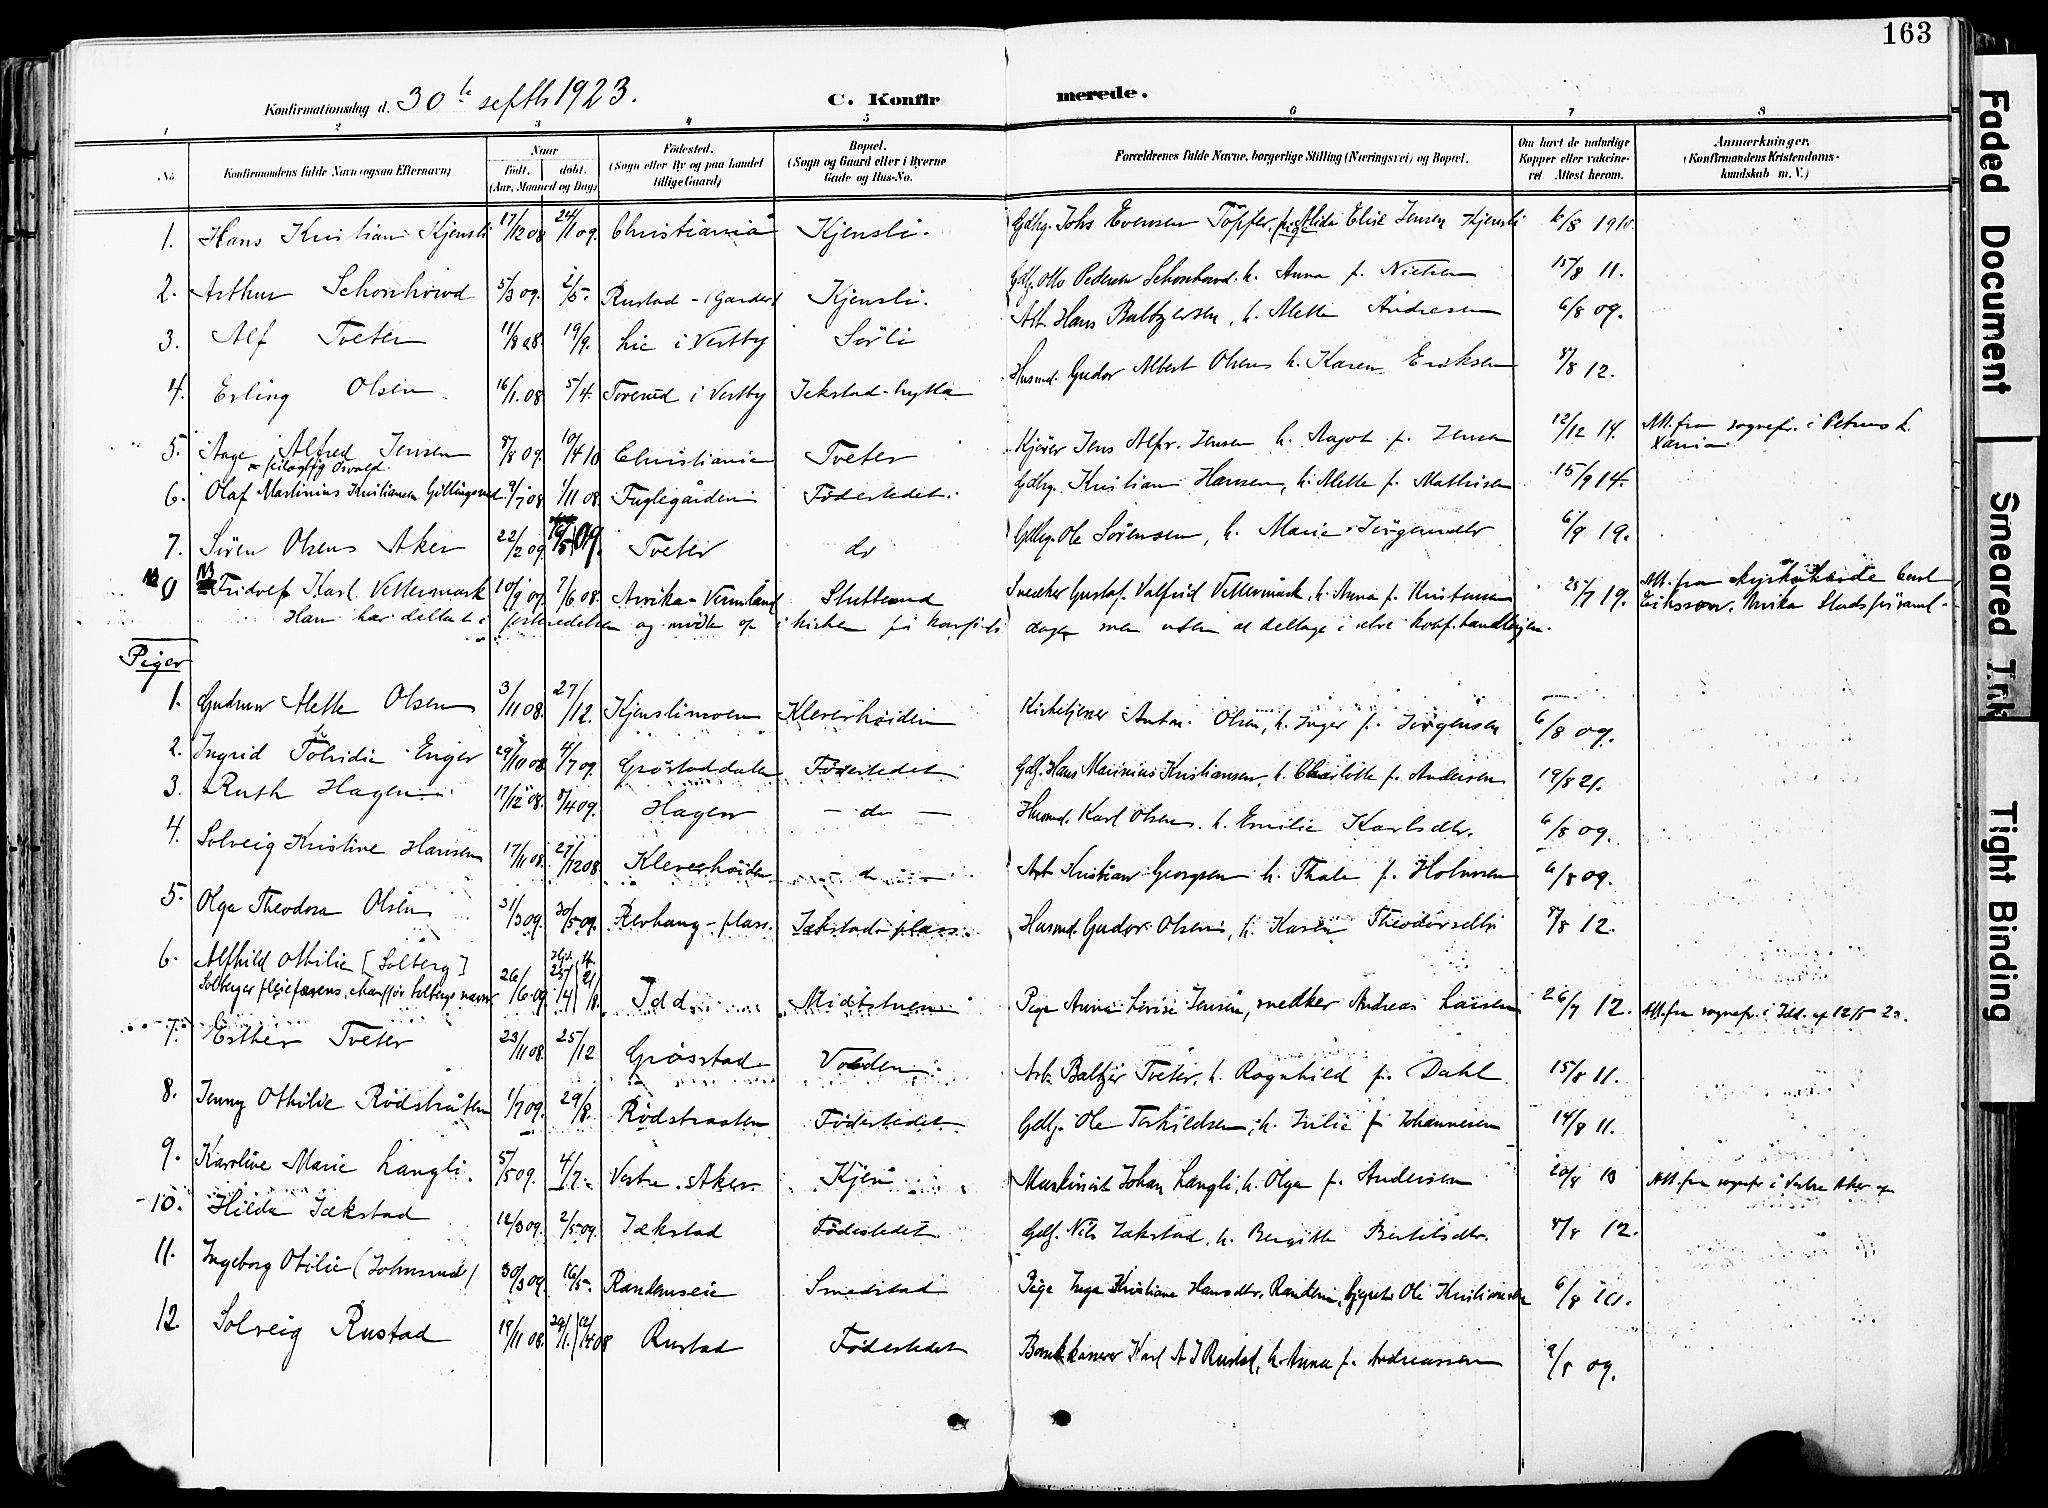 163
Konfirmationsdag d. 30te septbr 1923. C. Konfirmerede.
1 2 3 4 5 6 7 8
No. Konfirmandens fulde Navn (ogsaa Efternavn) Naar født. døbt. (Aar, Maaned og Dag) Fødested. (Sogn eller By og paa Landet tillige Gaard) Bopæl. (Sogn og Gaard eller i Byerne Gade og Hus-No. Forældrenes fulde Navne, borgerlige Stilling (Næringsvei) og Bopæl. Om havt de naturlige Kopper eller vakcineret. Attest herom. Anmærkninger. (Konfirmandens Kristendomskundskab m. V.)
1. Hans Kristian Kjensli 17/12 08 24/1 09. Christiania Kjensli. Gdbr. Johs Evensen Topfer, pige Alida Elise Jensen Kjensli 6/8 1910.
2. Arthur Schonhowd 5/3 09. 2/5 - Rustad - (Garder) Kjensli. Gdbr. Otto Pedersen Schonhowd. h. Anna f. Nielsen 15/8 11.
3. Alf Tveter 11/8 08. 19/9. Lie i Vestby Sørli Arb. Hans Baltzersen, h. Mette Andresen 6/8 09.
4. Erling Olsen 16/1. 08. 5/4. Torerud i Vestby Jekstad-hytta Husmd. Gudor Albert Olsen h. Karen Eriksen 8/8 12.
5. Aage Alfred Jensen 8/8 09. 10/4 10 Christiania Tveter Kjører Jens Alfr. Jensen h. Aagot f. Jensen 12/12 14. Att. fra sognepr. i Petrus k. Xania
6. Olaf Martinius Kristiansen Gillingsrud 9/7 08. 1/11 08. Fuglegården Fødestedet. Gdbr. Kristian Hansen, h. Mette f. Mathisen 15/9 14.
7. Søren Olsen Aker 22/2 09. 16/5 09. Tveter do Gdbr. Ole Sørensen, h. Marie Jørgensdtr 6/9 19.
NB 0 NB Fridolf Karl Vettermark 10/9 07. 7/6 08. Arvika - Vermland Stuttend Snedker Gustaf Valfrid Vettermark, h. Anna f. Kristensen 25/7 19. Att. fra kyrkoherde Carl Eriksson, Arvika Stadsförsaml.
Han har deltat i forberedelsen og mødte op i kirken på konf.s dagen men uten at deltage i selve konf.handlingen.
Piger
1. Gudrun Mette Olsen 3/11 08. 27/12. Kjenslimoen Kleverhøiden Kirketjener Anton Olsen, h. Inger f. Jørgensen 6/8 09.
2. Ingrid Tolvidia Enger 29/11 08 4/7 09. Grøstaddalen Fødestedet Gdf. Hans Marinius Kristiansen, h. Charlotte f. Andersen 19/8 21.
3. Ruth Hagen 17/12 08. 8/4 09. Hagen - do - Husmd. Karl Olsen. h. Emilie Karlsdtr. 6/8 09.
4. Solveig Kristine Hansen 17/11 08. 27/12 08 Kleverhøiden - do - Arb Kristian Georgsen h. Thale f. Holmsen 6/8 09.
5. Olga Theodora Olsen 31/3 09. 30/5 09. Revhaug-plass. Jekstad-plass. Husmd. Gudor Olsen, h. Karen Theodorsdtr 8/8 12.
6. Alfhild Othilie [Solberg] 26/6 09 Hjd. 25/4 | K. 2/8 Idd Midtstuen Pige Anna Lovise Jensen, snedker Andreas Larsen 26/7 12. Att. fra sognepr. i Idd. af 12/5 23.
7. Esther Tveter 23/11 08. 25/12 Grøstad Volden Arb. Baltzer Tveter. h. Ragnhild f. Dahl 15/8 11.
8. Jenny Othilde Rødstråten 1/7 09. 29/8. Rødstraaten Fødestedet Gdbr. Ole Torkildsen, h. Julie f. Johannesen 14/8 11.
9. Karoline Marie Langli. 5/5 09. 4/7 - Vestre Aker Kjen Maskinist Johan Langli, h. Olga f. Andersen 20/8 13 Att. fra sognepr. i Vestre Aker af
10. Hilda Jækstad 12/3 09. 2/5 09. Jækstad Fødestedet Gdf. Nils Jækstad, h. Bergitte Bertilsdtr. 8/8 12.
11. Ingeborg Otilie (Johnsrud) 30/3 09. 16/5 - Randemseie Smedstad Pige Inga Kristiane Hansdtr. Randem, Ole Kristiansen 6/8
12. Solveig Rustad 19/11 08. 29/1. | 12/4 08 Rustad Fødestedet Bankkasserer Karl A J Rustad, h. Anna f. Andreassen 9/8 09.
Faded Document
Smeared Ink
Tight Binding